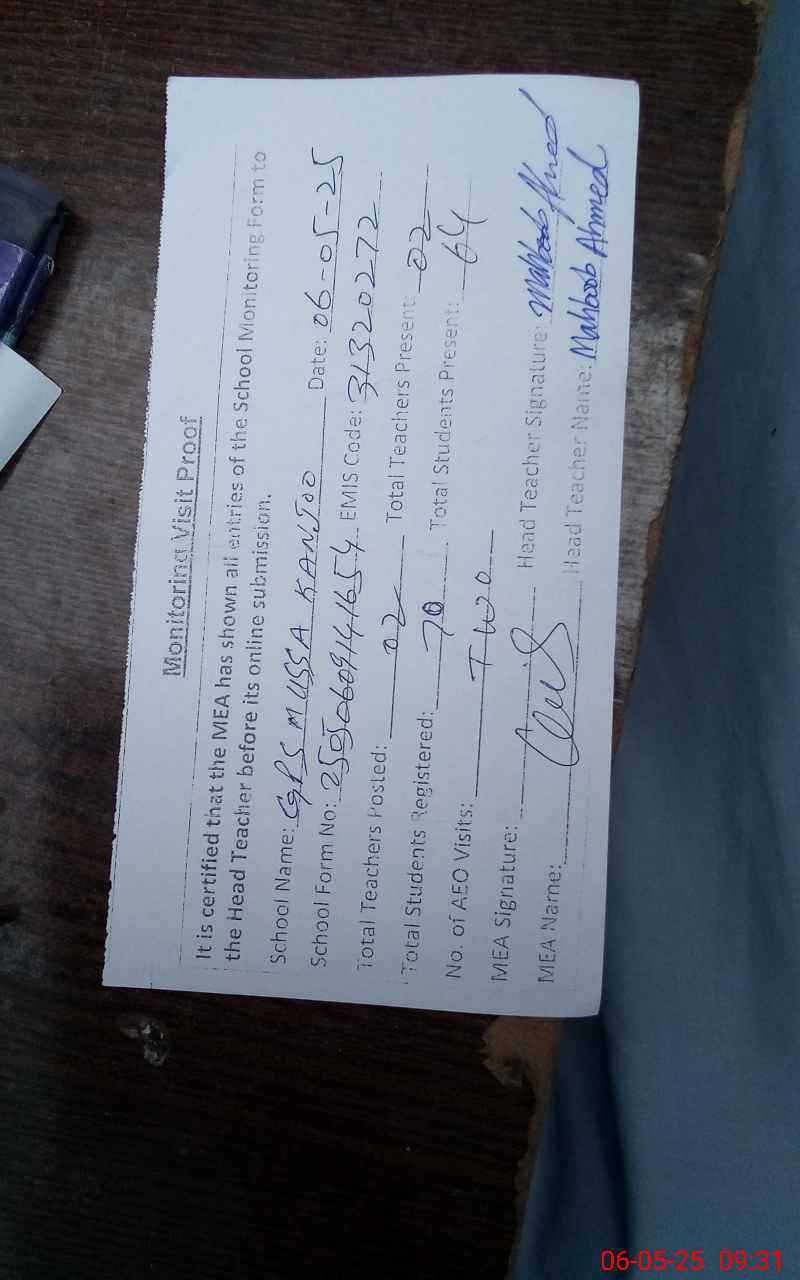 Monitoring Visit Proof
It is certified that the MEA has shown all entries of the School Monitoring Form to
the Head Teacher before its online submission.
School Name: GPS MUSSA KANJOO Date: 06-05-25
School Form No: 25050609141654 EMIS Code: 31320272
Total Teachers Posted: 02 Total Teachers Present: 02
Total Students Registered: 70 Total Students Present: 64
No. of AEO Visits: TWO
MEA Signature: Head Teacher Signature: Mahboob Ahmed
MEA Name: Head Teacher Name: Mahboob Ahmed
06-05-25 09:31